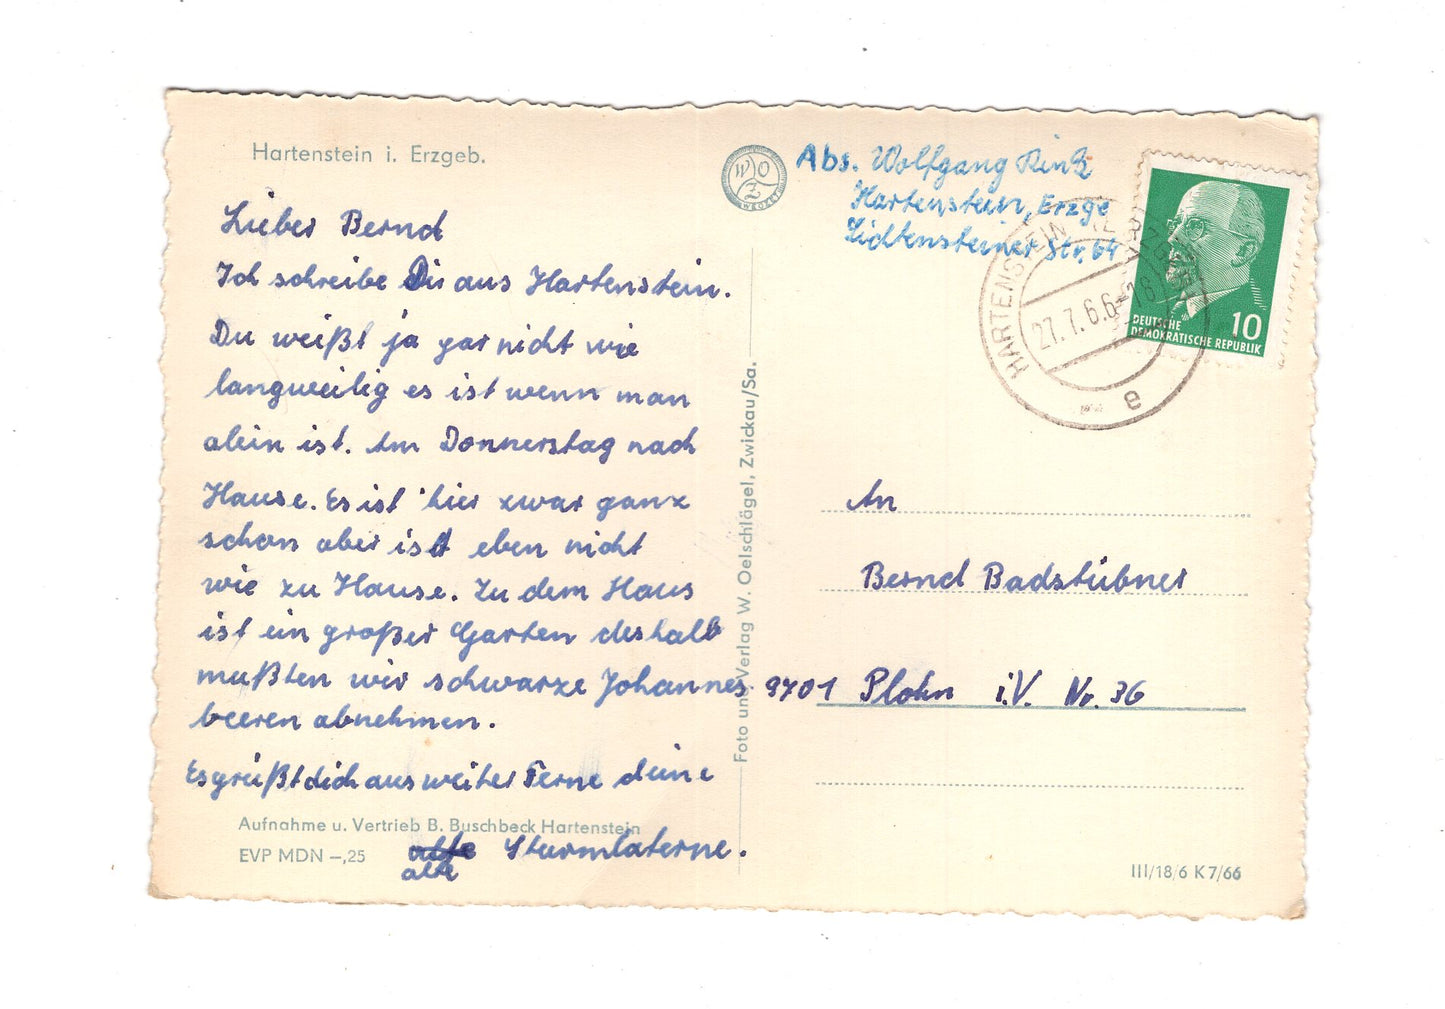 Hartenstein i. Erzgeb.
Lieber Bernd
Ich schreibe Dir aus Hartenstein.
Du weißt ja gar nicht wie
langweilig es ist wenn man
alein ist. Am Donnerstag nach
Hause. Es ist hier zwar ganz
schön aber ist eben nicht
wie zu Hause. Zu dem Haus
ist ein großer Garten deshalb
mußten wir schwarze Johannes-
beeren abnehmen.
Es grüßt dich aus weiter Ferne deine
alte Sturmlaterne.
Aufnahme u. Vertrieb B. Buschbeck Hartenstein
EVP MDN –,25
Foto und Verlag W. Oelschlägel, Zwickau/Sa.
WOZ
Abs. Wolfgang Rink
Hartenstein, Erzge
Lichtensteiner Str. 64
HARTENSTEIN
27.7.66-18
e
DEUTSCHE
DEMOKRATISCHE REPUBLIK
10
An
Bernd Badstübner
9701 Plohn i.V. Nr. 36
III/18/6 K 7/66